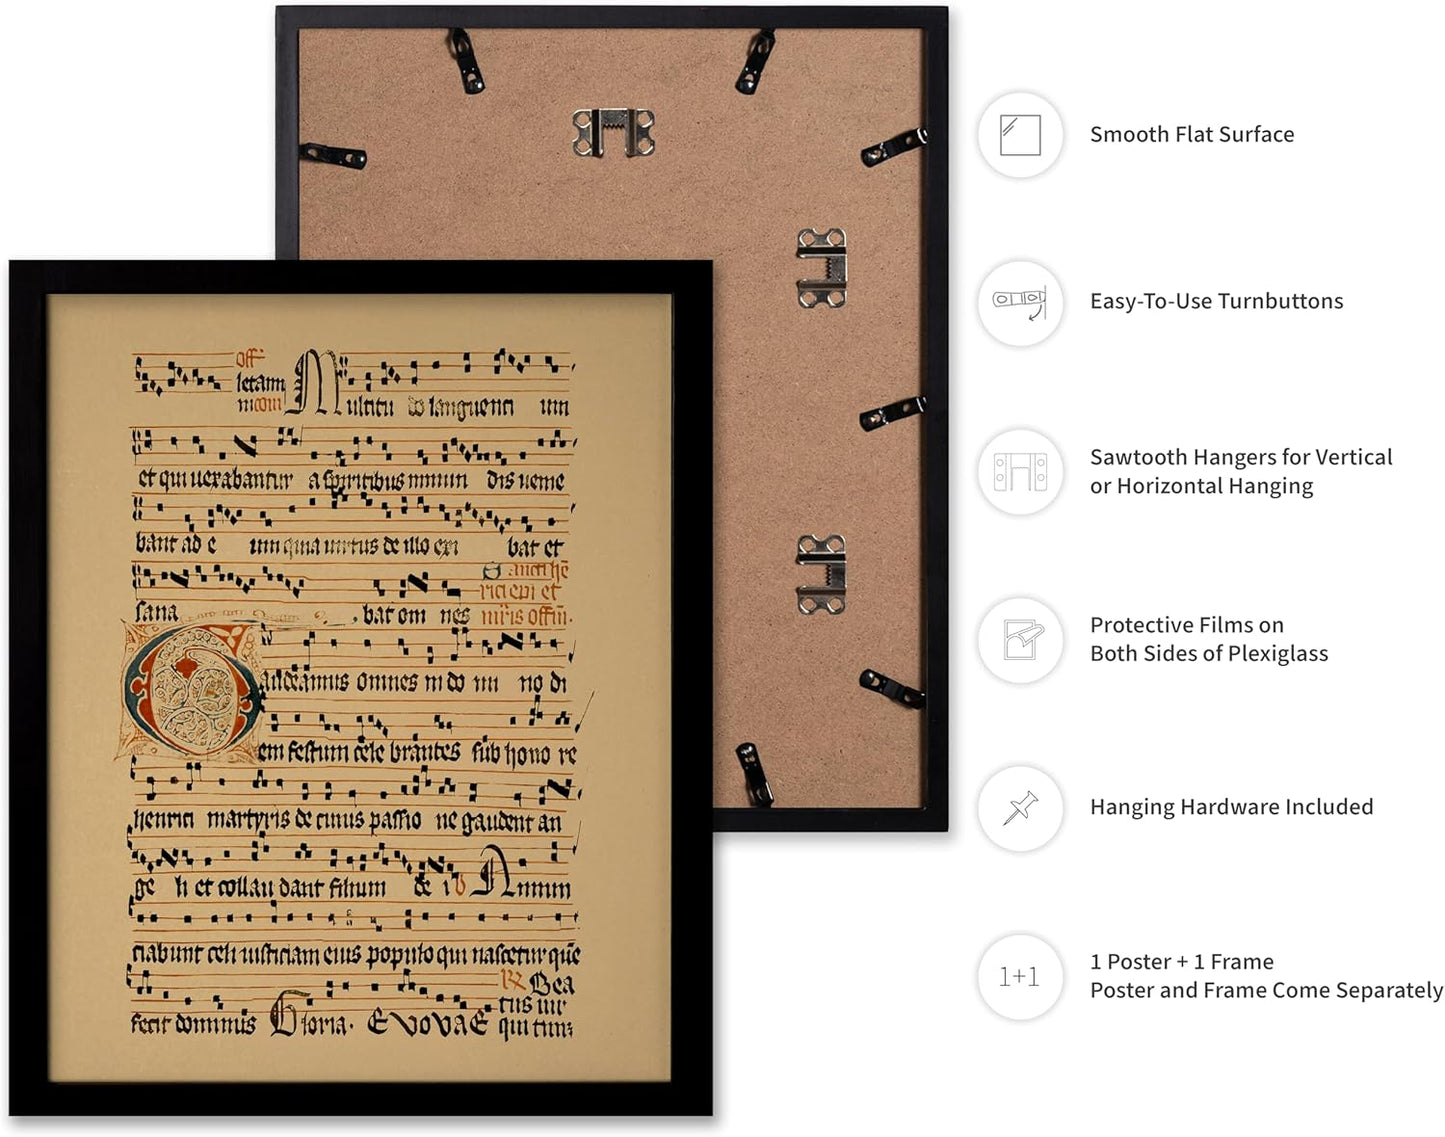 off
letania
m com
Multitu do languenti um
et qui uexabantur a spiritibus inmun dis uenie
bant ad e um quia uirtus de illo exi bat et
sana bat om nes
Gaudeamus omnes in do mi no di
em festum cele brantes sub hono re
henrici martyris de cuius passio ne gaudent an
ge li et collau dant filium de i
ciabunt celi iusticiam eius populo qui nascetur que
fecit dominus Gloria. EVOVAE
Bea
tus uir
Smooth Flat Surface
Easy-To-Use Turnbuttons
Sawtooth Hangers for Vertical
or Horizontal Hanging
Protective Films on
Both Sides of Plexiglass
Hanging Hardware Included
1+1
1 Poster + 1 Frame
Poster and Frame Come Separately